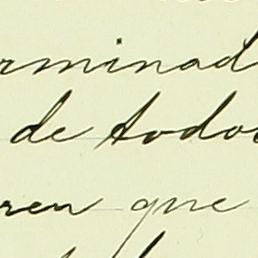 rminad
de todos
ren que